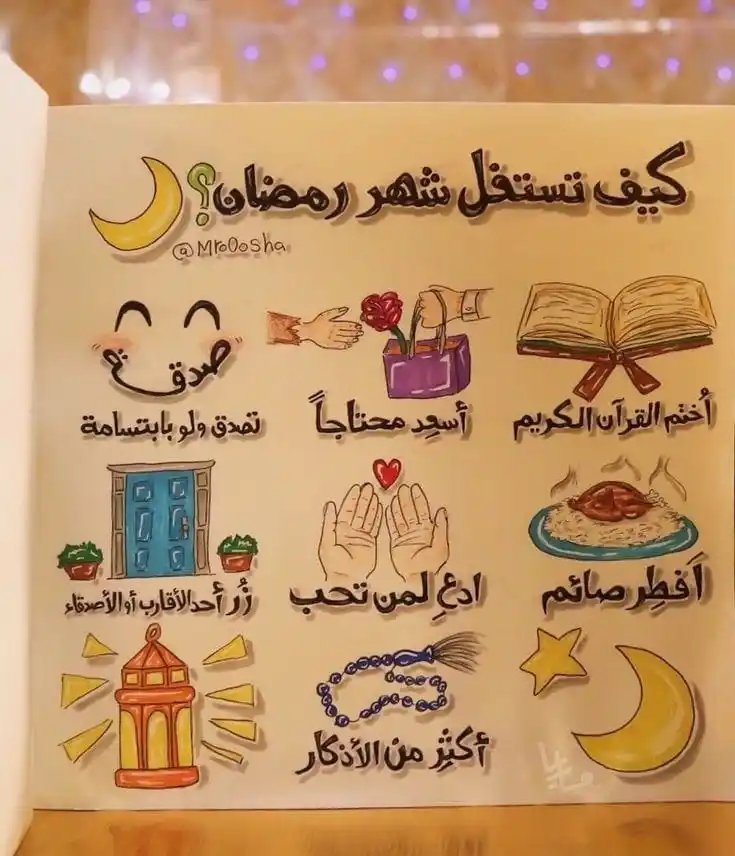 كيف تستغل شهر رمضان؟
@MroOosha
أُختم القرآن الكريم
أسعِد محتاجاً
صدقة
تصدق ولو بابتسامة
أَفطِر صائم
ادعِ لمن تحب
زُر أحد الأقارب أو الأصدقاء
أكثِر من الأذكار